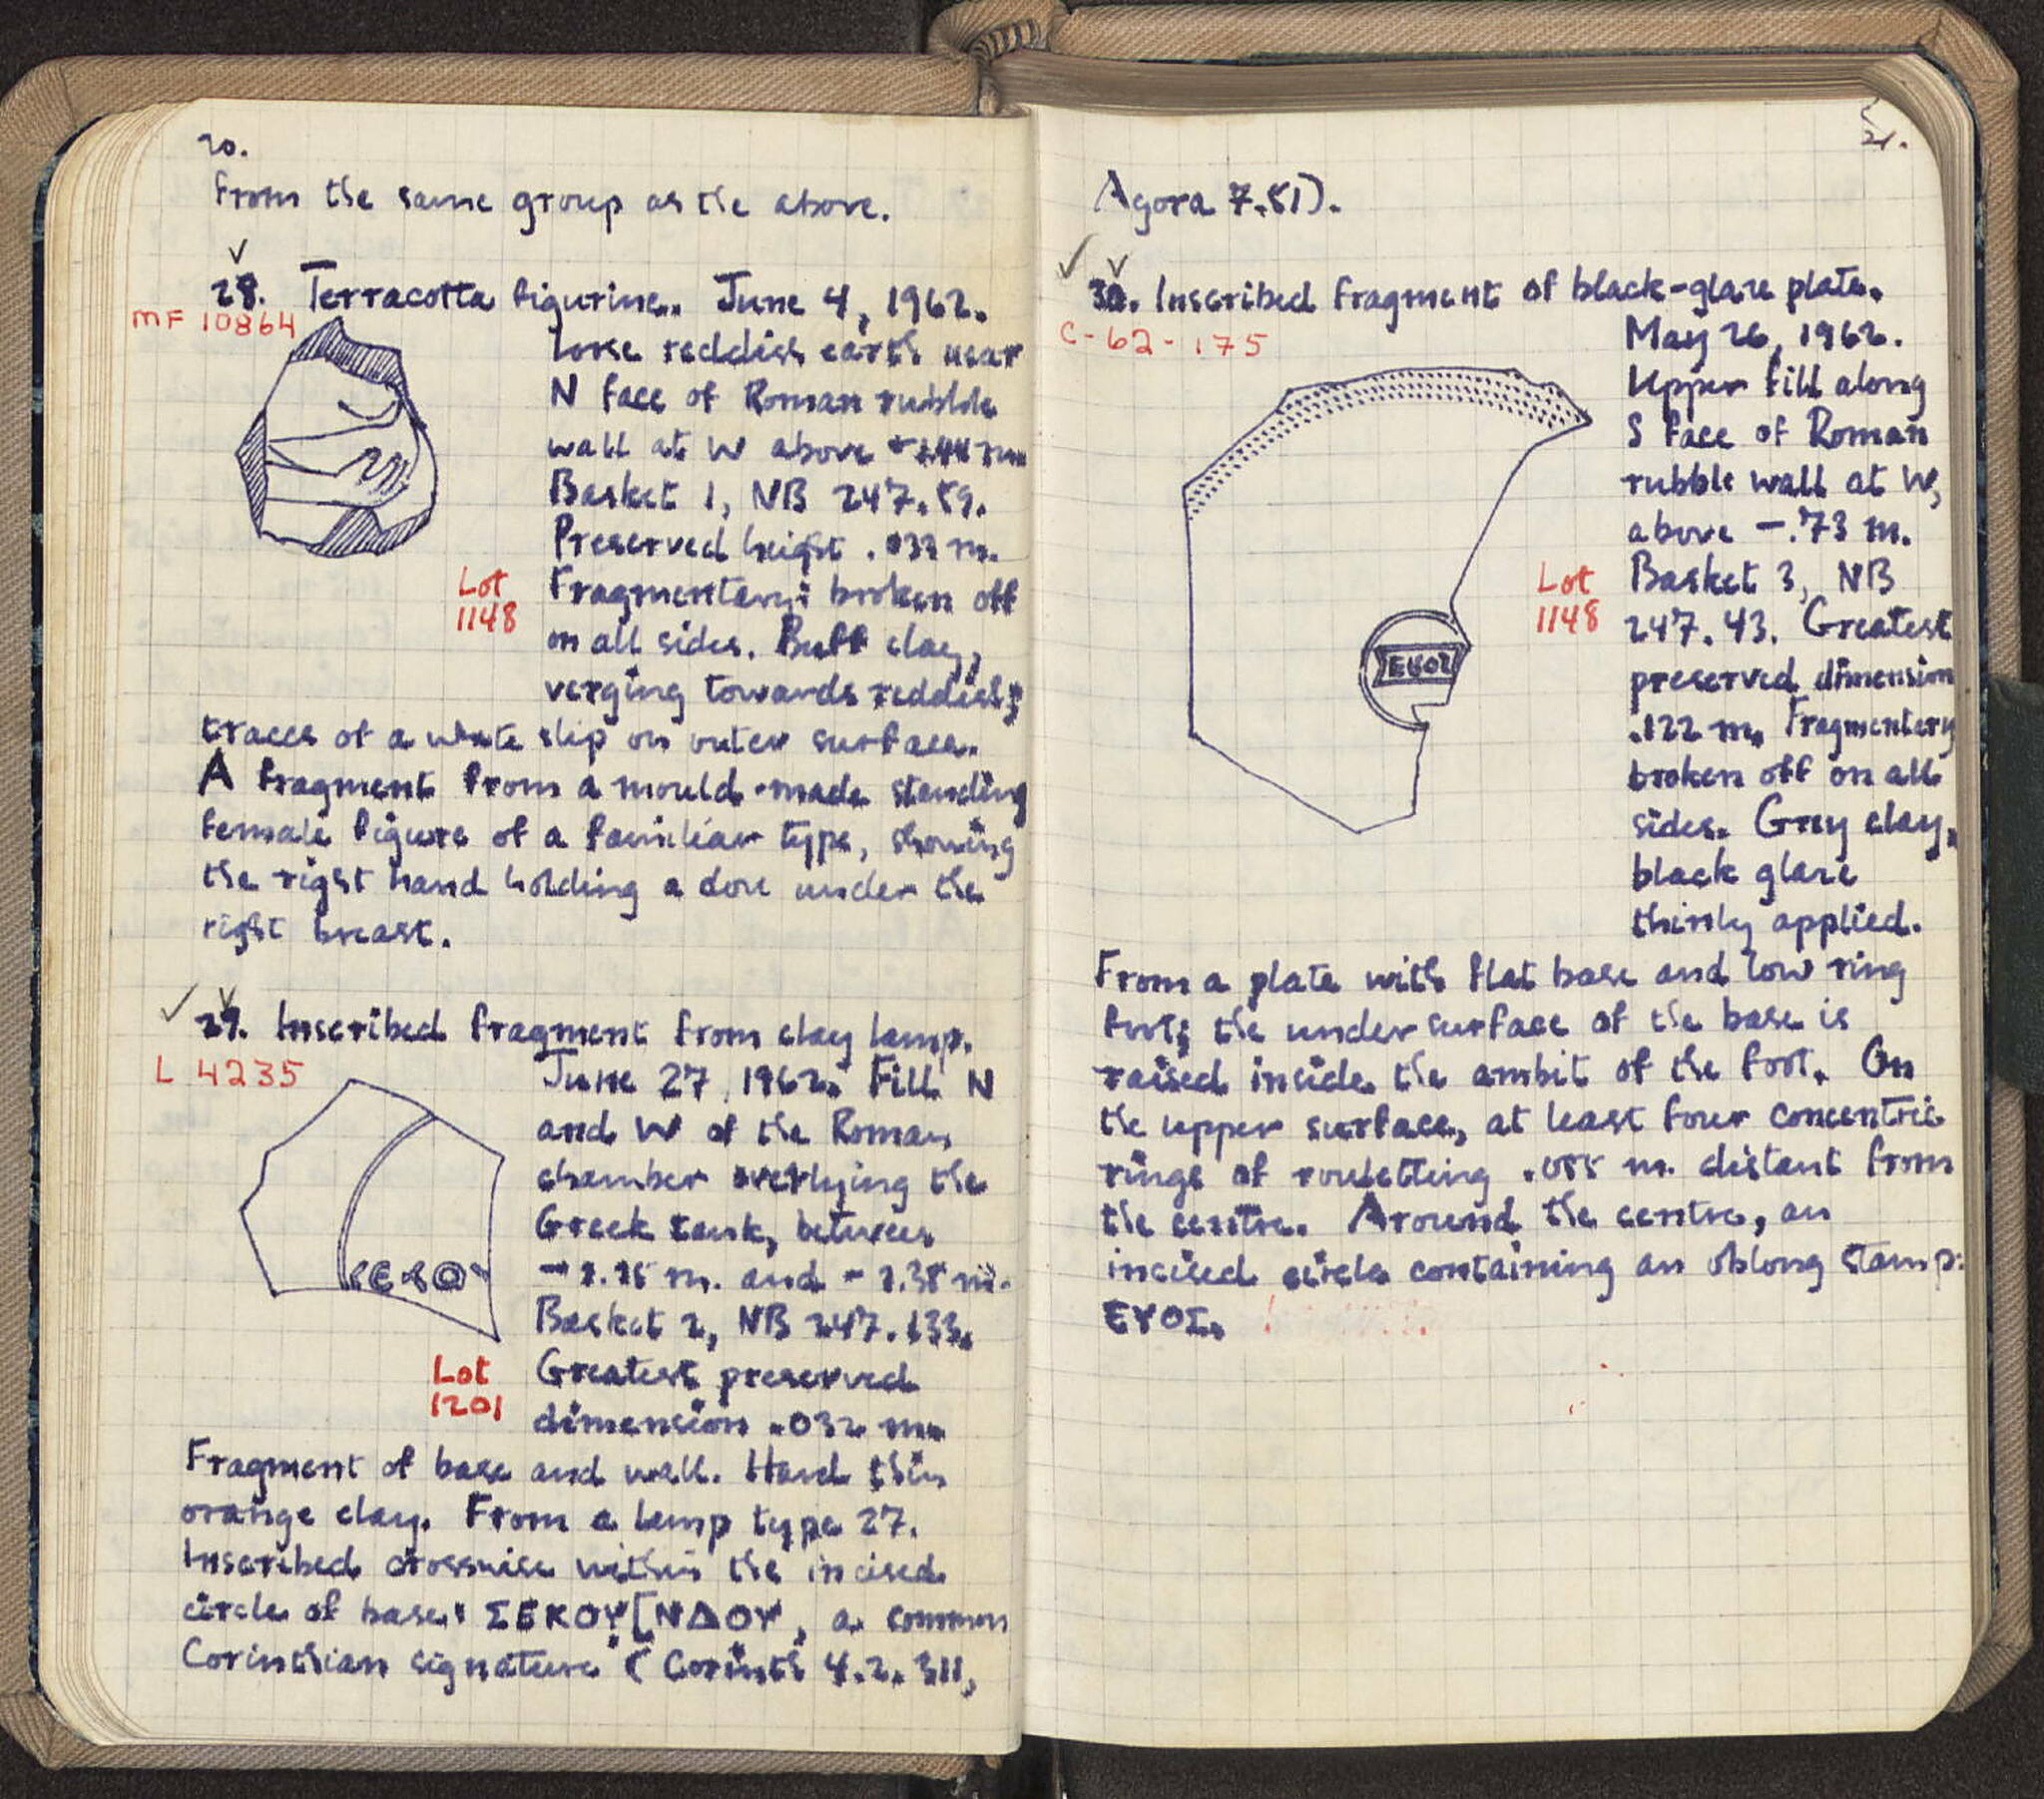 20.
From the same group as the above.
28. Terracotta figurine. June 4, 1962.
MF 10864
Loose reddish earth near
N face of Roman rubble
wall at W above
Basket 1, NB 247.59.
Preserved height .033 m.
Lot
1148
Fragmentary: broken off
on all sides. Buff clay,
verging towards reddish;
traces of a white slip on outer surface.
A fragment from a mould-made standing
female figure of a familiar type, showing
the right hand holding a dove under the
right breast.
29. Inscribed fragment from clay lamp.
L 4235
June 27, 1962. Fill N
and W of the Roman
chamber overlying the
Greek tank, between
m. and m.
Basket 2, NB 247.133.
Lot
1201
Greatest preserved
dimension .032 m.
Fragment of base and wall. Hard thin
orange clay. From a lamp type 27.
Inscribed crosswise within the incised
circle of base: ΣΕΚΟΥ[ΝΔΟΥ, a common
Corinthian signature (Corinth 4.2. 311,
21.
Agora 7.81).
30. Inscribed fragment of black-glaze plate.
C-62-175
May 26, 1962.
Upper fill along
S face of Roman
rubble wall at W,
above -.73 m.
Lot
1148
Basket 3, NB
247.43. Greatest
preserved dimension
.122 m. Fragmentary
broken off on all
sides. Grey clay,
black glaze
thinly applied.
From a plate with flat base and low ring
foot; the under surface of the base is
raised inside the ambit of the foot. On
the upper surface, at least four concentric
rings of rouletting .055 m. distant from
the centre. Around the centre, an
incised circle containing an oblong stamp:
ΕΥΟΣ.